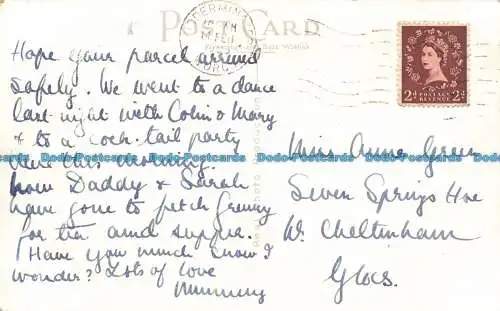 POST CARD
Hope your parcel arrived
safely. We went to a dance
last night with Colin & Mary
& to a cock-tail party
here this morning.
Now Daddy & Sarah
have gone to fetch
for tea and supper.
Have you much snow I
wonder? Lots of love
Mummy
Real Photo
POSTAGE
REVENUE
2d 2d
Miss Anne Green
Seven Springs Hse
Nr. Cheltenham
Glos.
Dodo-Postcards Dodo-Postcards Dodo-Postcards Dodo-Postcards Dodo-Postcards